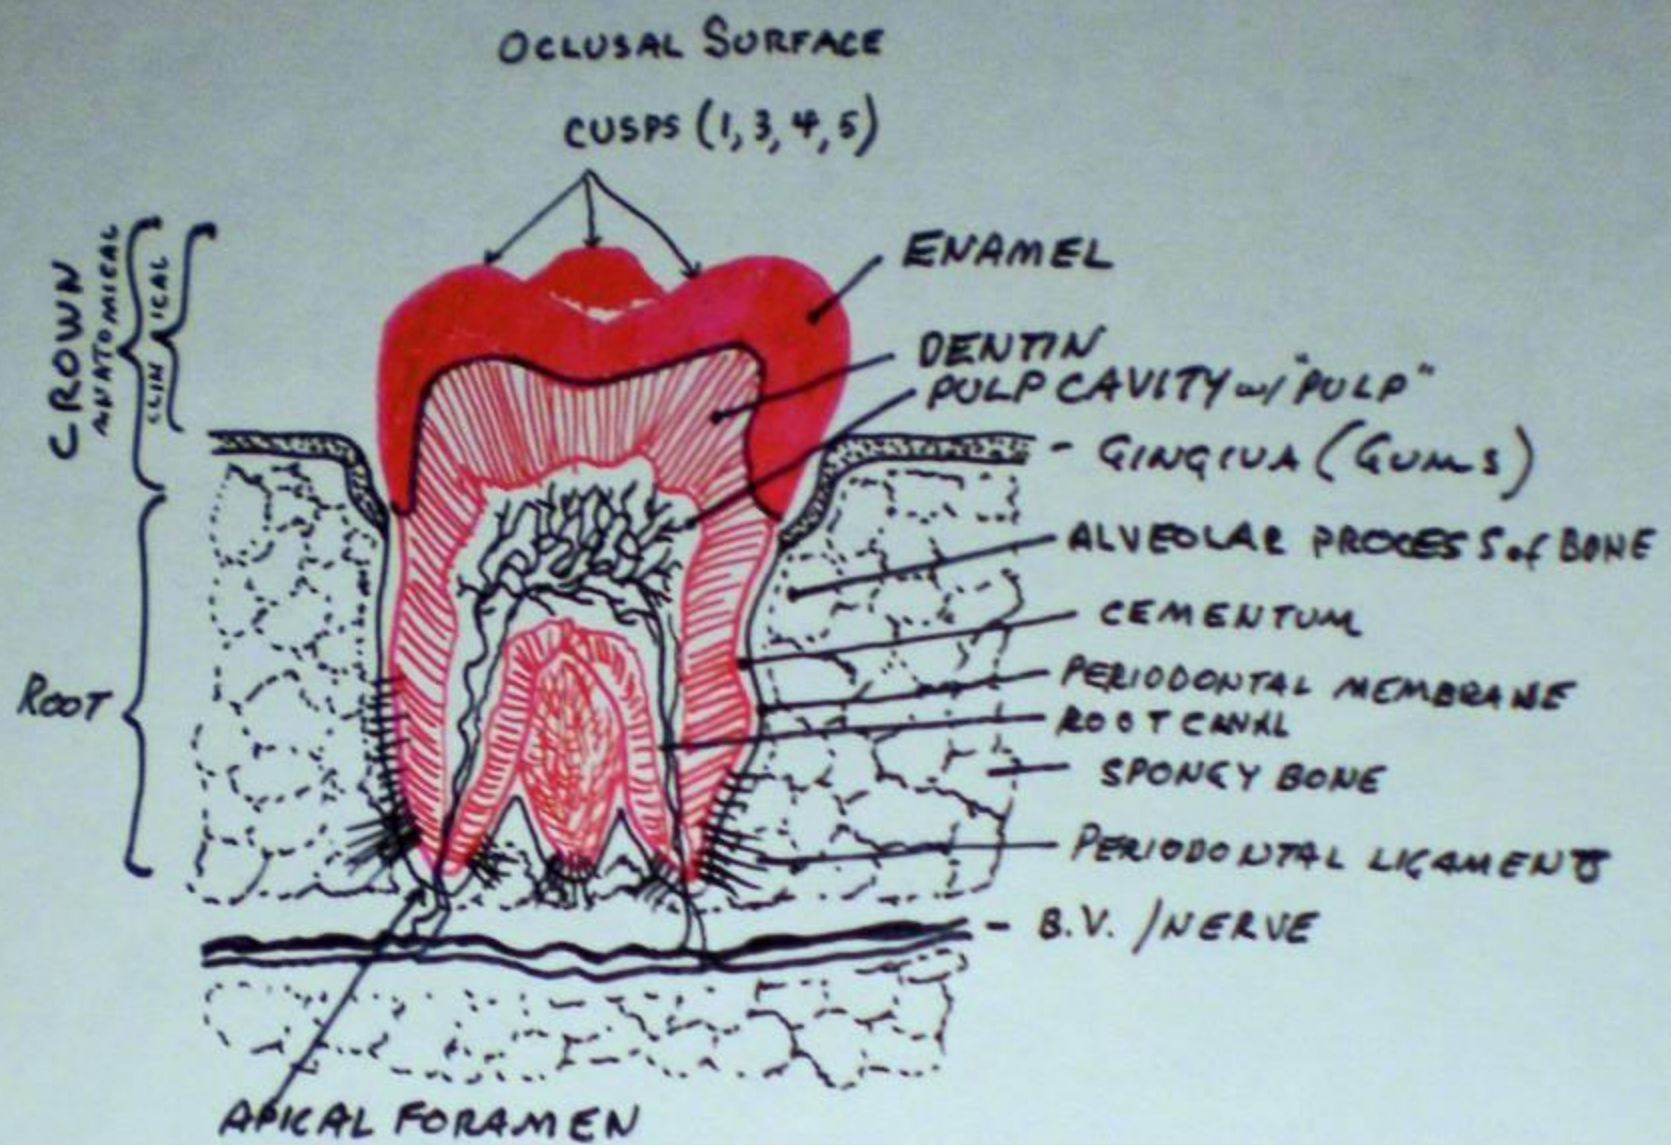 OCLUSAL SURFACE
CUSPS (1, 3, 4, 5)
CROWN
ANATOMICAL
CLINICAL
ENAMEL
DENTIN
PULP CAVITY w/ "PULP"
- GINGIVA (GUMS)
ALVEOLAR PROCESS of BONE
CEMENTUM
PERIODONTAL MEMBRANE
ROOT CANAL
ROOT
SPONGY BONE
PERIODONTAL LIGAMENTS
- B.V. / NERVE
APICAL FORAMEN